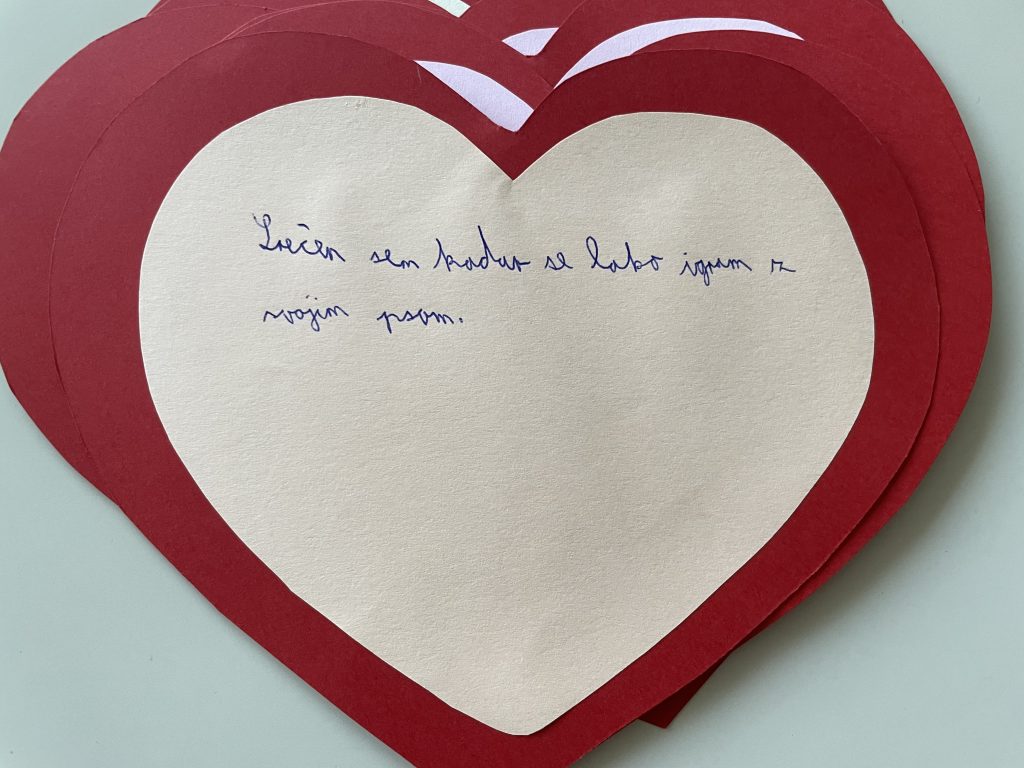 Srečen sem kadar se lahko igram z
svojim psom.